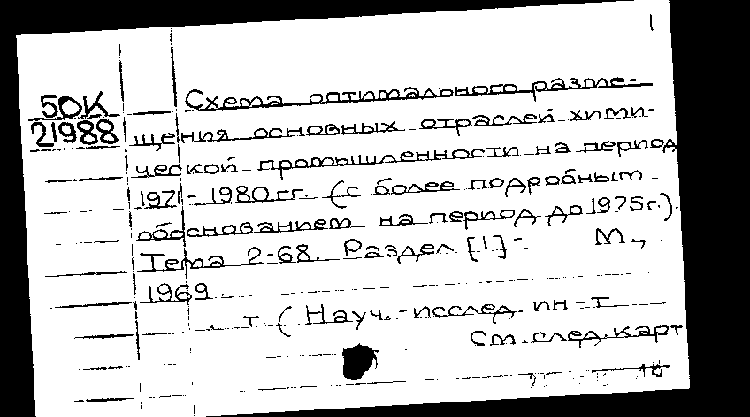 1
50К
21988
Схема оптимального разме-
щения основных отраслей хими-
ческой промышленности на период
1971-1980гг. (с более подробным
обоснованием на период до 1975г.).
Тема 2-68. Раздел [1]- М.,
1969
. т (Науч.-исслед. ин-т
См. след. карт